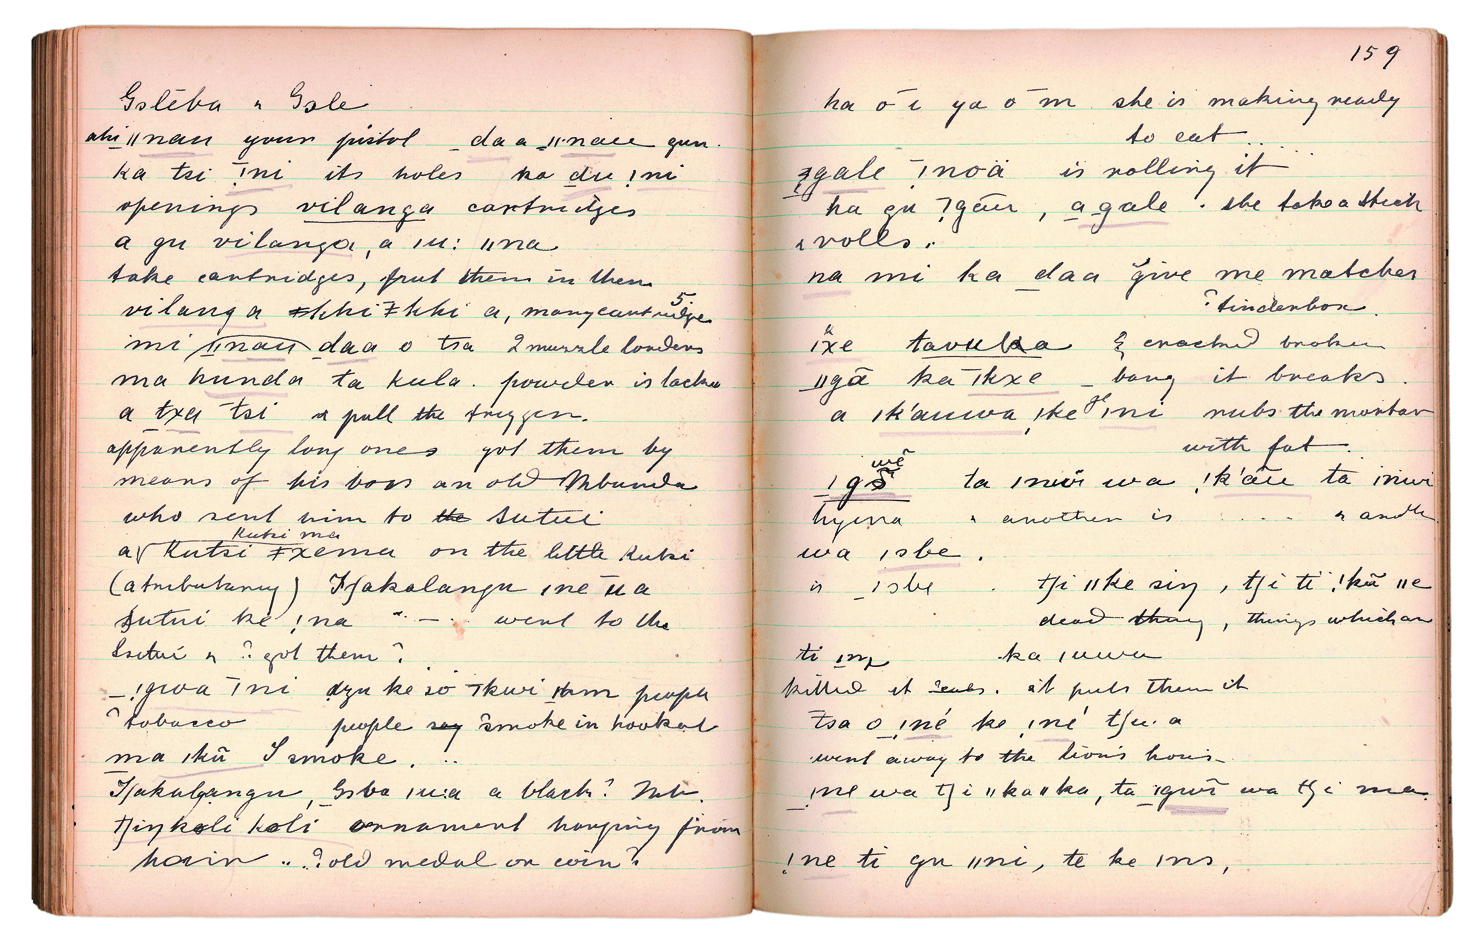 Gsléba " Gsle
ahi ǁnau your pistol daa ǁnau gun.
ka tsi ǃni its holes ka du ǃni
openings vilanga cartridges
a gu vilanga, a ǀu: ǁna
take cartridges, put them in them
vilanga ǂkhi ǂkhi a, many cartridges
mi ǁnau daa o tsa 2 muzzle loaders
ma hunda ta kula. powder is lacking
a txa tsi & pull the trigger.
apparently long ones got them by
means of his boss an old Mbunda
who sent him to the Sutui
Kutsi ma
a Kutsi ǂxema on the little Kutsi
(a tributary) Tʃakalangu ǀne ūa
Sutui ke ǃna " — . went to the
Ssutui " ? got them ?
ǃgwa ǀni dzu ke so ǀkwi people
? tobacco people say smoke in hookah
ma ǀkū I smoke.
Tʃakalangu, Gsba ǀu:a a black? Mb.
tʃiŋkoli koli ornament hanging from
hair " ? old medal or coin ?
159
ha ō ī ya ō m she is making ready
to eat ...
ǂgale ǀnoä is rolling it
ha gu ʔgāu, a gale . she takes a stick
& rolls.
na mi ka daa give me matches
? tinderbox.
ǀxe tavuka & cracked broken
ǁgā ka ǀkxe _ bang it breaks.
a ǀk'auwa ǀke ǀni rubs the mortar
with fat
wē
ǀgō ta ǀnwi wa ǃk'āu ta ǀnwi
hyena " another is .... & another
wa ǀsbe.
is ǀsbe . tʃi ǁke siŋ, tʃi tï ǃkū ǁe
dead thing, things which are
ti ka ǀuwa
killed it eats. it puts them it
tsa o ǀné ke ǀné tʃu:a
went away to the lion's house
ǀne wa tʃi ǁka ǁka, ta ǀgwī wa tʃi ma.
ǃne ti gu ǁni, te ke ǀns,